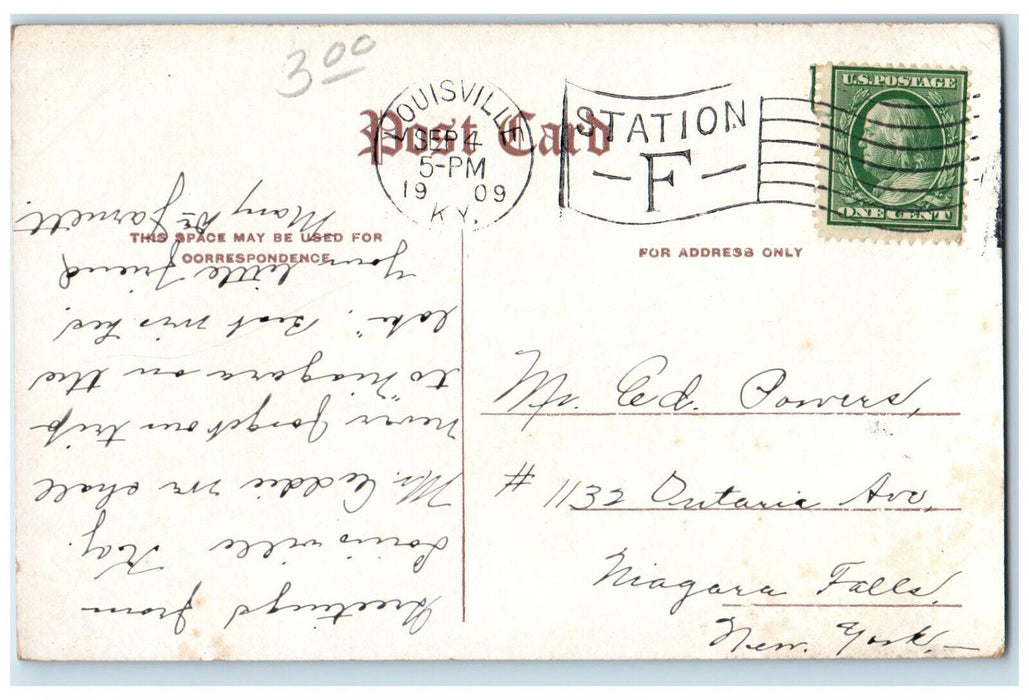 3.00
Post Card
LOUISVILLE
SEP 4
5-PM
1909
KY.
STATION
-F-
U.S. POSTAGE
ONE CENT
THIS SPACE MAY BE USED FOR
CORRESPONDENCE
FOR ADDRESS ONLY
Greetings from
Louisville Ky.
Mr. Eddie we shall
never forget our trip
to "Niagara on the
lake". Best wishes.
Your little friend
Mary Jarnett.
Mr. Ed. Powers,
# 1132 Ontario Ave,
Niagara Falls,
New. York.